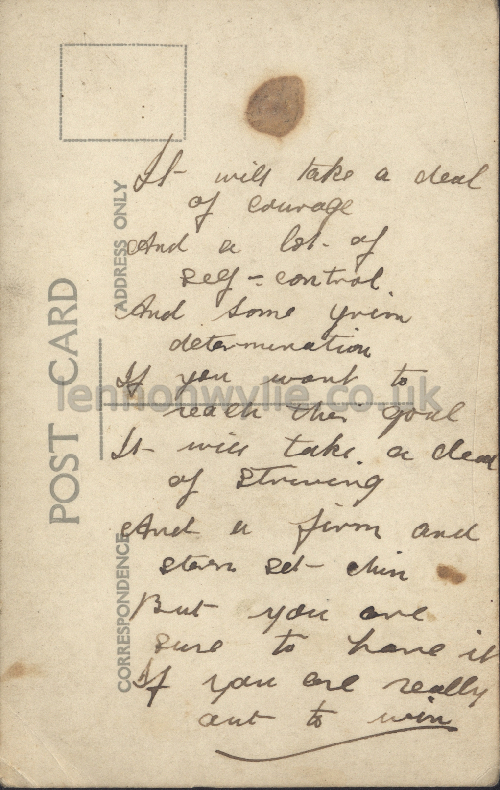 POST CARD
ADDRESS ONLY
CORRESPONDENCE
lennonwylie.co.uk
It will take a deal
of courage
And a lot of
self-control
And some grim
determination
If you want to
reach the goal
It will take a deal
of striving
And a firm and
stern set chin
But you are
sure to have it
If you are really
out to win